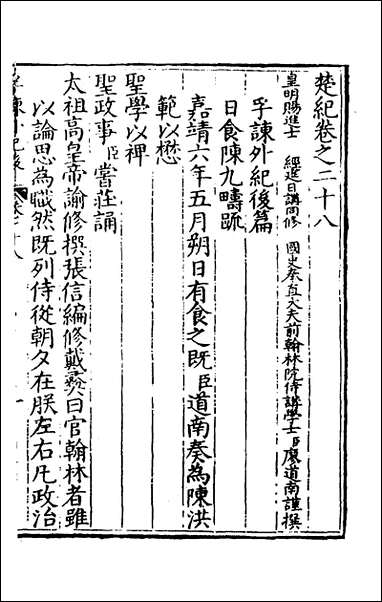 楚紀卷之二十八
皇明賜進士 經筵日講同修 國史奉直大夫前翰林院侍講學士臣廖道南謹撰
孚諫外紀後篇
日食陳九疇䟽
嘉靖六年五月朔日有食之既臣道南奏為陳洪
範以懋
聖學以裨
聖政事臣嘗莊誦
太祖高皇帝諭修撰張信編修戴彛曰官翰林者雖
以論思為職然既列侍從朝夕在朕左右凡政治